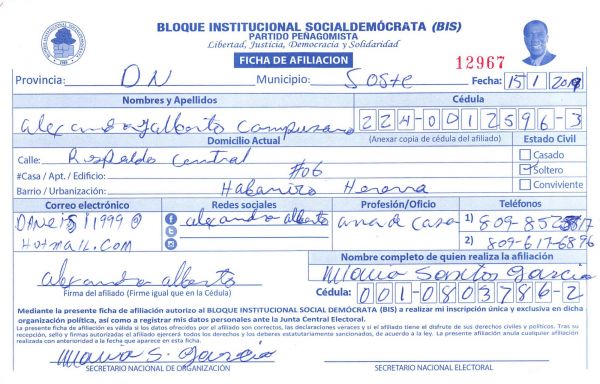 BLOQUE INSTITUCIONAL SOCIALDEMÓCRATA (BIS)
PARTIDO PEÑAGOMISTA
Libertad, Justicia, Democracia y Solidaridad
FICHA DE AFILIACION
12967
Provincia: DN Municipio: Soste Fecha: 15/1/2019
Nombres y Apellidos Cédula
alexandra alberto Campusano 224-0012596-3
Domicilio Actual (Anexar copia de cédula del afiliado) Estado Civil
Calle: Respaldo Central Casado
#Casa / Apt. / Edificio: #06 Soltero
Barrio / Urbanización: Herrera Conviviente
Correo electrónico Redes sociales Profesión/Oficio Teléfonos
DANeisi1999@ alexandra alberto ama de casa 1) 809-852
HotmaiL.com 2) 809-617-6896
Nombre completo de quien realiza la afiliación
alexandra alberto Maria Santos Garcia
Firma del afiliado (Firme igual que en la Cédula) Cédula: 001-0803786-2
Mediante la presente ficha de afiliación autorizo al BLOQUE INSTITUCIONAL SOCIAL DEMÓCRATA (BIS) a realizar mi inscripción única y exclusiva en dicha
organización política, así como a registrar mis datos personales ante la Junta Central Electoral.
La presente ficha de afiliación será válida si los datos ofrecidos por el afiliado son correctos, las declaraciones veraces y si el afiliado tiene el disfrute de sus derechos civiles y políticos. Tras su
recepción, sello y firmas autorizadas el afiliado ejercerá todos los derechos y los deberes estatutariamente sancionados, de acuerdo a la ley. La presente afiliación anula cualquier afiliación
realizada con anterioridad a la fecha que aparece en esta ficha.
Maria S. Garcia
SECRETARIO NACIONAL DE ORGANIZACIÓN SECRETARIO NACIONAL ELECTORAL